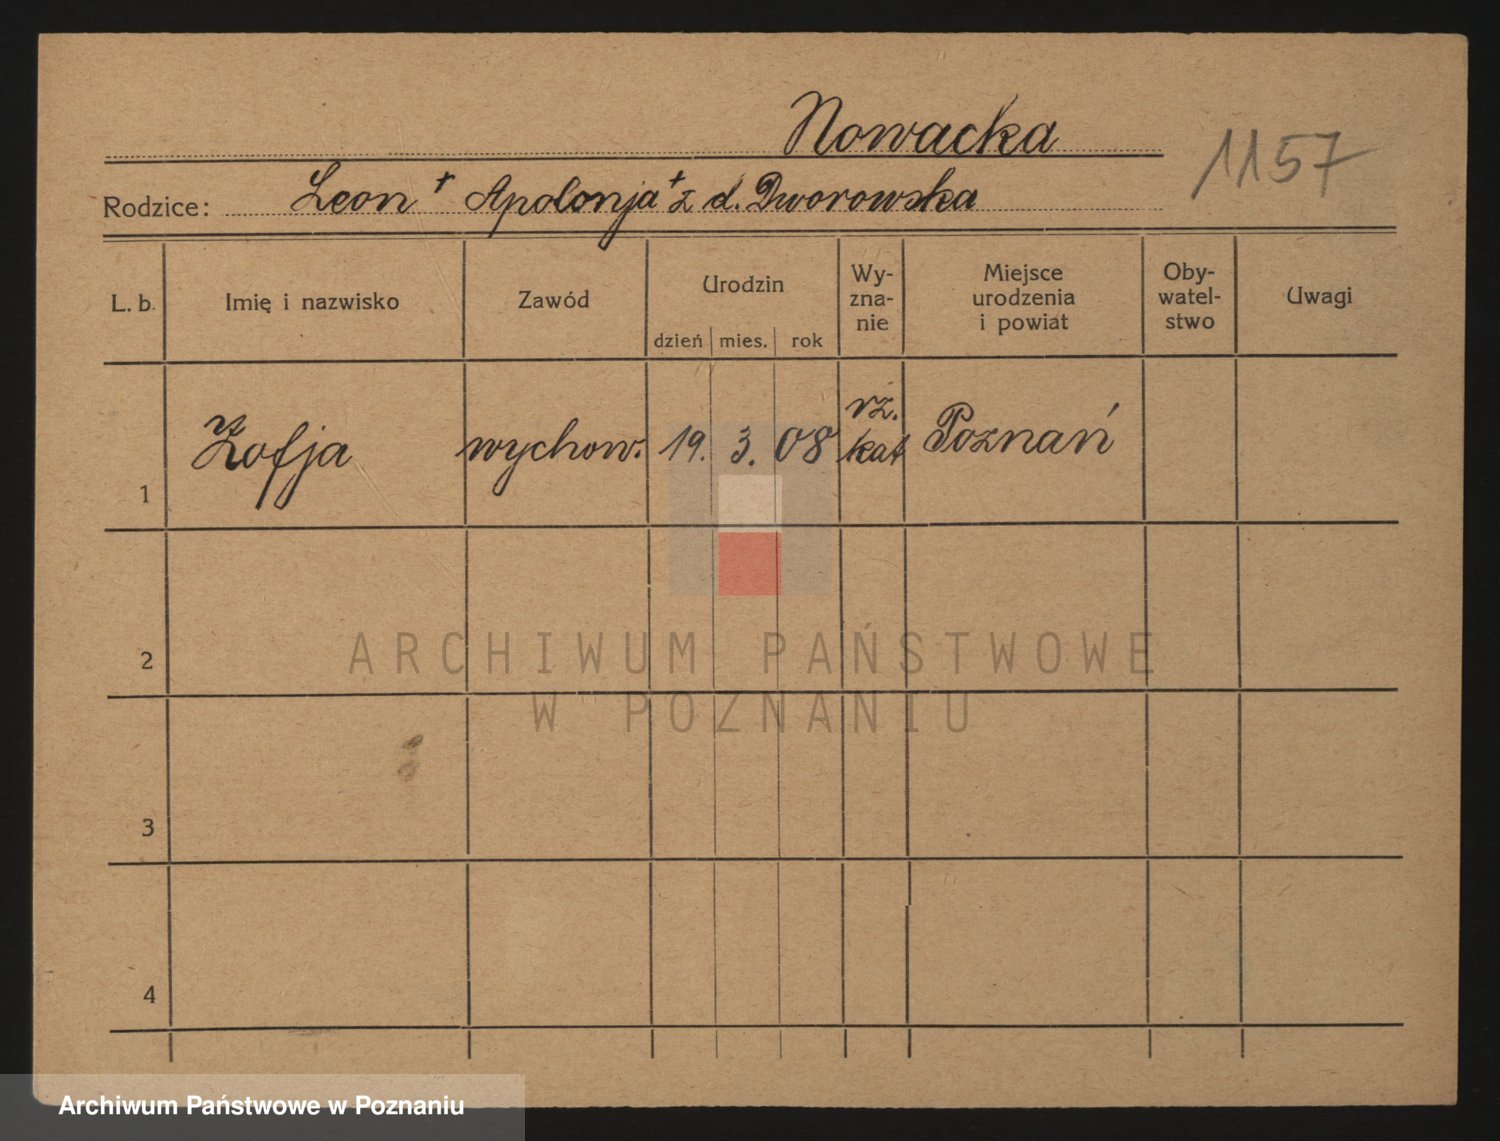 Nowacka
1157
Rodzice: Leon + Apolonja + z d. Dworowska
L. b. Imię i nazwisko Zawód Urodzin dzień mies. rok Wy-zna-nie Miejsce urodzenia i powiat Oby-watel-stwo Uwagi
1 Zofja wychow. 19. 3. 08 rz. kat Poznań
2
ARCHIWUM PAŃSTWOWE
W POZNANIU
3
4
Archiwum Państwowe w Poznaniu